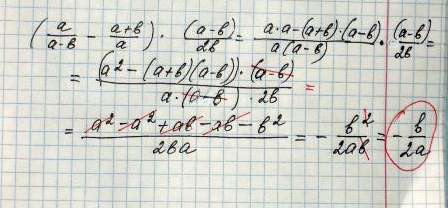 (a/(a-b) - (a+b)/a) · (a-b)/2b = (a·a-(a+b)·(a-b))/(a(a-b)) · (a-b)/2b =
= ((a²-(a+b)(a-b))·(a-b))/(a·(a-b)·2b) =
= (a²-a²+ab-ab-b²)/2ba = - b²/2ab = - b/2a